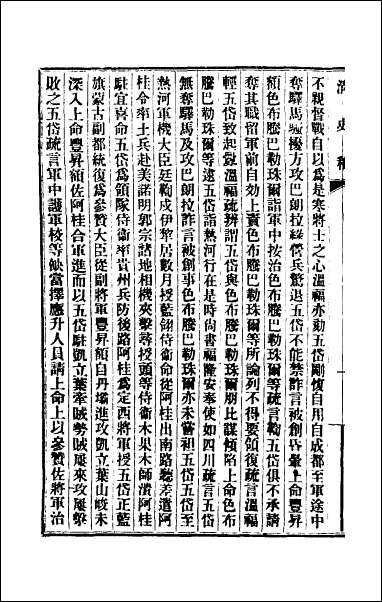 清史稿
不親督戰自以爲是寒將士之心溫福亦劾五岱剛愎自用自成都至軍途中
奪驛馬騷擾方攻巴朗拉綠營兵驚退五岱不能禁詐言被創上命豐昇
額色布騰巴勒珠爾詣軍中按治色布騰巴勒珠爾等疏言鞫五岱俱不承請
奪其職留軍前自効上責色布騰巴勒珠爾等所論列不得要領復疏言溫福
輕五岱致起釁溫福疏辨謂五岱與色布騰巴勒珠爾朋比謀傾陷上命色布
騰巴勒珠爾等逮五岱詣熱河行在是時尚書福隆安奉使如四川疏言五岱
無奪驛馬及攻巴朗拉詐言被創事色布騰巴勒珠爾亦未嘗袒五岱五岱至
熱河軍機大臣廷鞫戍伊犂居數月授藍翎侍衛命從阿桂出南路聽差遣阿
桂令率土兵赴美諾明郭宗諸地相機夾擊尋授頭等侍衛木果木師潰阿桂
駐宜喜命五岱爲領隊侍衛率貴州兵防後路阿桂爲定西將軍授五岱正藍
旗蒙古副都統復爲參贊大臣從副將軍豐昇額自丹壩進攻凱立葉山峻未
深入上命豐昇額佐阿桂合軍進而以五岱駐凱立葉牽賊勢賊屢來攻屢擊
敗之五岱疏言軍中護軍校等缺當擇應升人員請上命上以參贊佐將軍治